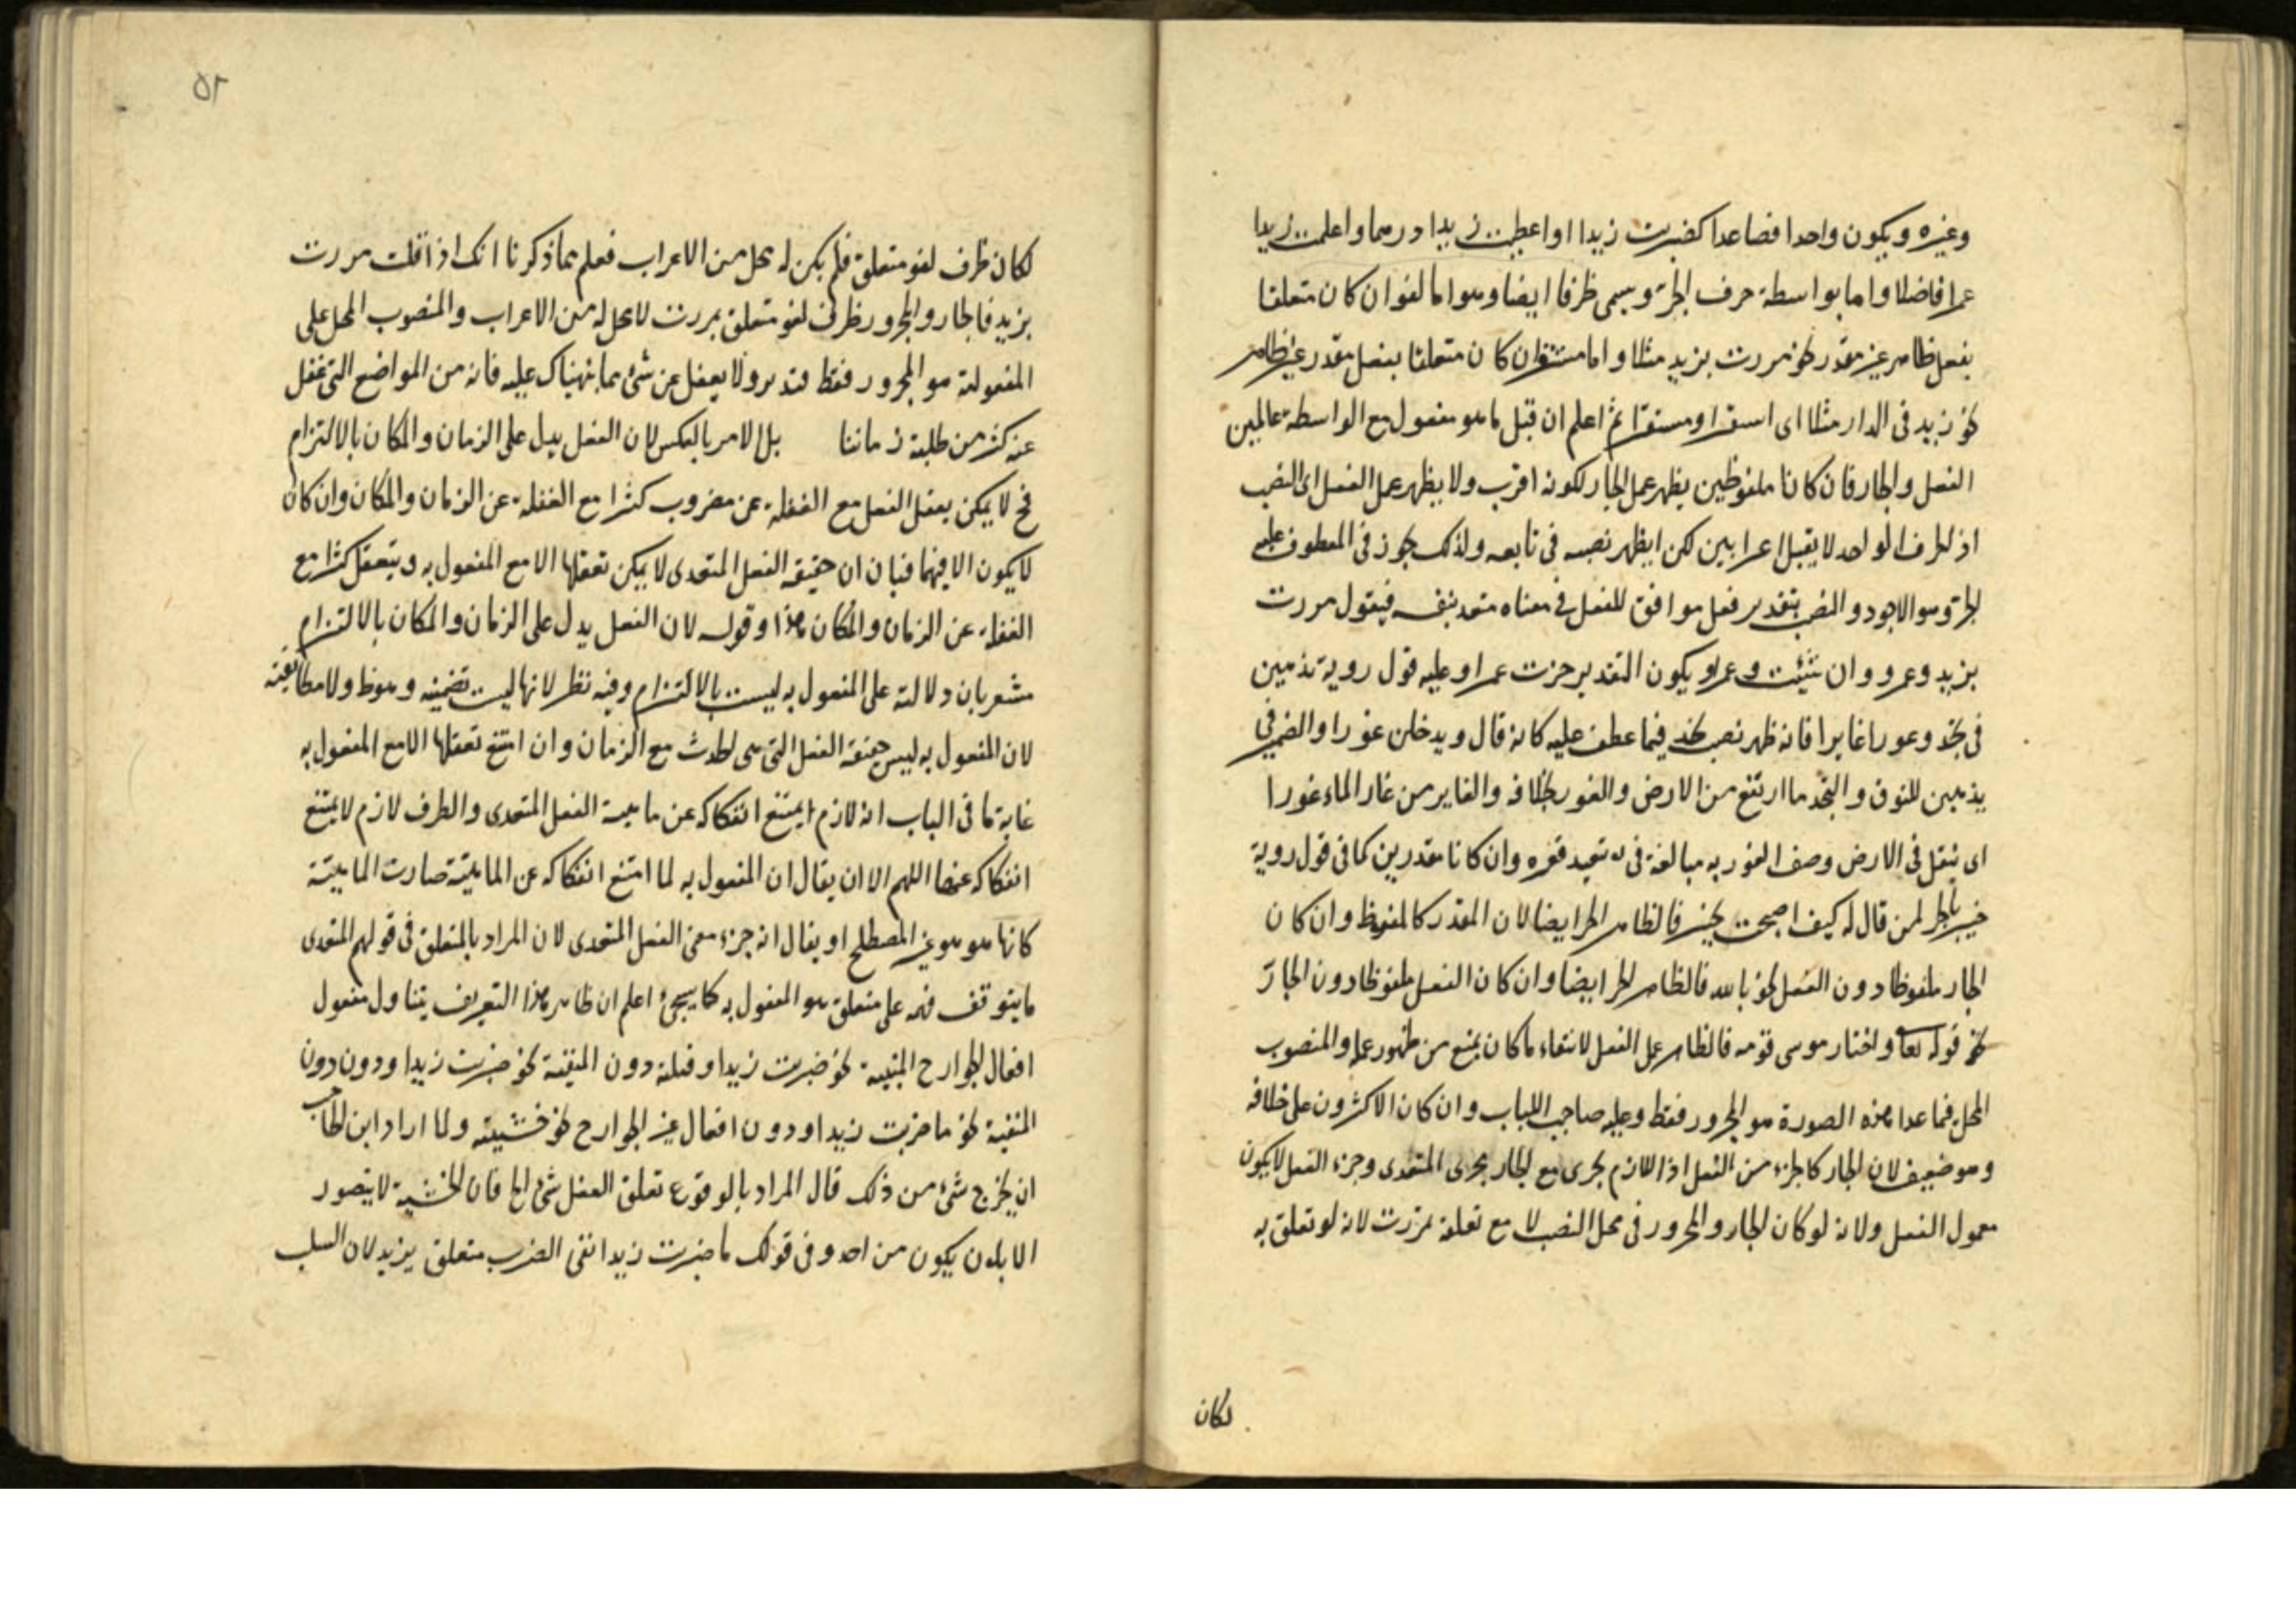 وغيره ويكون واحدا فصاعدا كضربت زيدا او اعطيت زيدا درهما واعلمت زيدا
عمرا فاضلا واما بواسطة حرف الجر ويسمى ظرفا ايضا وهو اما لغو ان كان متعلقا
بفعل ظاهر غير مقدر نحو مررت بزيد مثلا واما مستقر ان كان متعلقا بفعل مقدر غير ظاهر
نحو زيد في الدار مثلا اى استقر او مستقر ثم اعلم ان قبل ما هو مفعول مع الواسطة عاملين
الفعل والجار فان كانا ملفوظين يظهر عمل الجار لكونه اقرب ولا يظهر عمل الفعل اى النصب
اذ لحرف الواحد لا يقبل اعرابين لكن ايظهر نصبه في تابعه ولذلك جوز في المعطوف عليه
الجر وهو الاجود والنصب بتقدير فعل موافق للفعل في معناه متعد بنفسه فيقول مررت
بزيد وعمرو وان شئت وعمرا ويكون التقدير جزت عمرا وعليه قول روبة يذهبن
في نجد وغورا غايرا فانه ظهر نصب نجد فيما عطف عليه كانه قال ويدخلن غورا والضمير في
يذهبن للنوق والنجد ما ارتفع من الارض والغور بخلافه والغاير من غار الماء غورا
اى في الارض وصف الغور به مبالغة في بعيد قعره وان كانا مقدرين كما في قول روبة
خير بالجر لمن قال له كيف اصبحت بخير فالظاهر الجر ايضا لان المقدر كالملفوظ وان كان
الجار ملفوظا دون الفعل نحو بالله فالظاهر الجر ايضا وان كان الفعل ملفوظا دون الجار
نحو قوله تعا واختار موسى قومه فالظاهر عمل الفعل لانتفاء ما كان يمنع من ظهور عمله والمنصوب
المحل فيما عدا هذه الصورة هو المجرور فقط وعليه صاحب اللباب وان كان الاكثرون على خلافه
وهو ضعيف لان الجار كالجزء من الفعل اذ اللازم يجرى مع الجار مجرى المتعدى وجزء الفعل لا يكون
معمول الفعل ولانه لو كان الجار والمجرور في محل النصب لا مع تعلقه بمررت لانه لو تعلق به
لكان
٥٢
لكان ظرف لغو متعلق فلم يكن له محل من الاعراب فعلم مما ذكرنا انك اذا قلت مررت
بزيد فالجار والمجرور ظرف لغو متعلق بمررت لا محل له من الاعراب والمنصوب المحل على
المفعولية هو المجرور فقط فتدبر ولا يغفل عن شئ مما نبهناك عليه فانه من المواضع التى غفل
عنه كثير من طلبة زماننا بل الامر بالعكس لان الفعل يدل على الزمان والمكان بالالتزام
فح لا يمكن تعقل الفعل مع الغفلة عن مضروب كثيرا مع الغفلة عن الزمان والمكان وان كان
لا يكون الا فيهما فبان ان حقيقة الفعل المتعدى لا يمكن تعقلها الا مع المفعول به ويتعقل كثيرا مع
الغفلة عن الزمان والمكان هذا وقوله لان الفعل يدل على الزمان والمكان بالالتزام
مشعر بان دلالته على المفعول به ليست بالالتزام وفيه نظر لانها ليست تضمينه وهو ظ ولا مطابقية
لان المفعول به ليس حقيقة الفعل التى هى الحدث مع الزمان وان امتنع تعقلها الا مع المفعول به
غاية ما في الباب انه لازم ايمتنع انفكاكه عن ماهية الفعل المتعدى والظرف لازم لا يمتنع
انفكاكه عنها اللهم الا ان يقال ان المفعول به لما امتنع انفكاكه عن الماهية صارت الماهية
كانها هو هو غير المصطلح او يقال انه جزء معنى الفعل المتعدى لان المراد بالمتعلق في قولهم المتعدى
ما يتوقف فهمه على متعلق هو المفعول به كما سيجئ اعلم ان ظاهر هذا التعريف يتناول مفعول
افعال الجوارح المثبتة نحو ضربت زيدا وقتلته دون المنفية نحو ضربت زيدا ودون دون
المنفية نحو ما ضربت زيدا ودون افعال غير الجوارح نحو خشيته ولما اراد ابن الحاجب
ان يخرج شئ من ذلك قال المراد بالوقوع تعلق الفعل بشئ الخ فان الخشية لا يتصور
الا بان يكون من احد وفى قولك ما ضربت زيدا نفى الضرب متعلق بزيد لان السلب